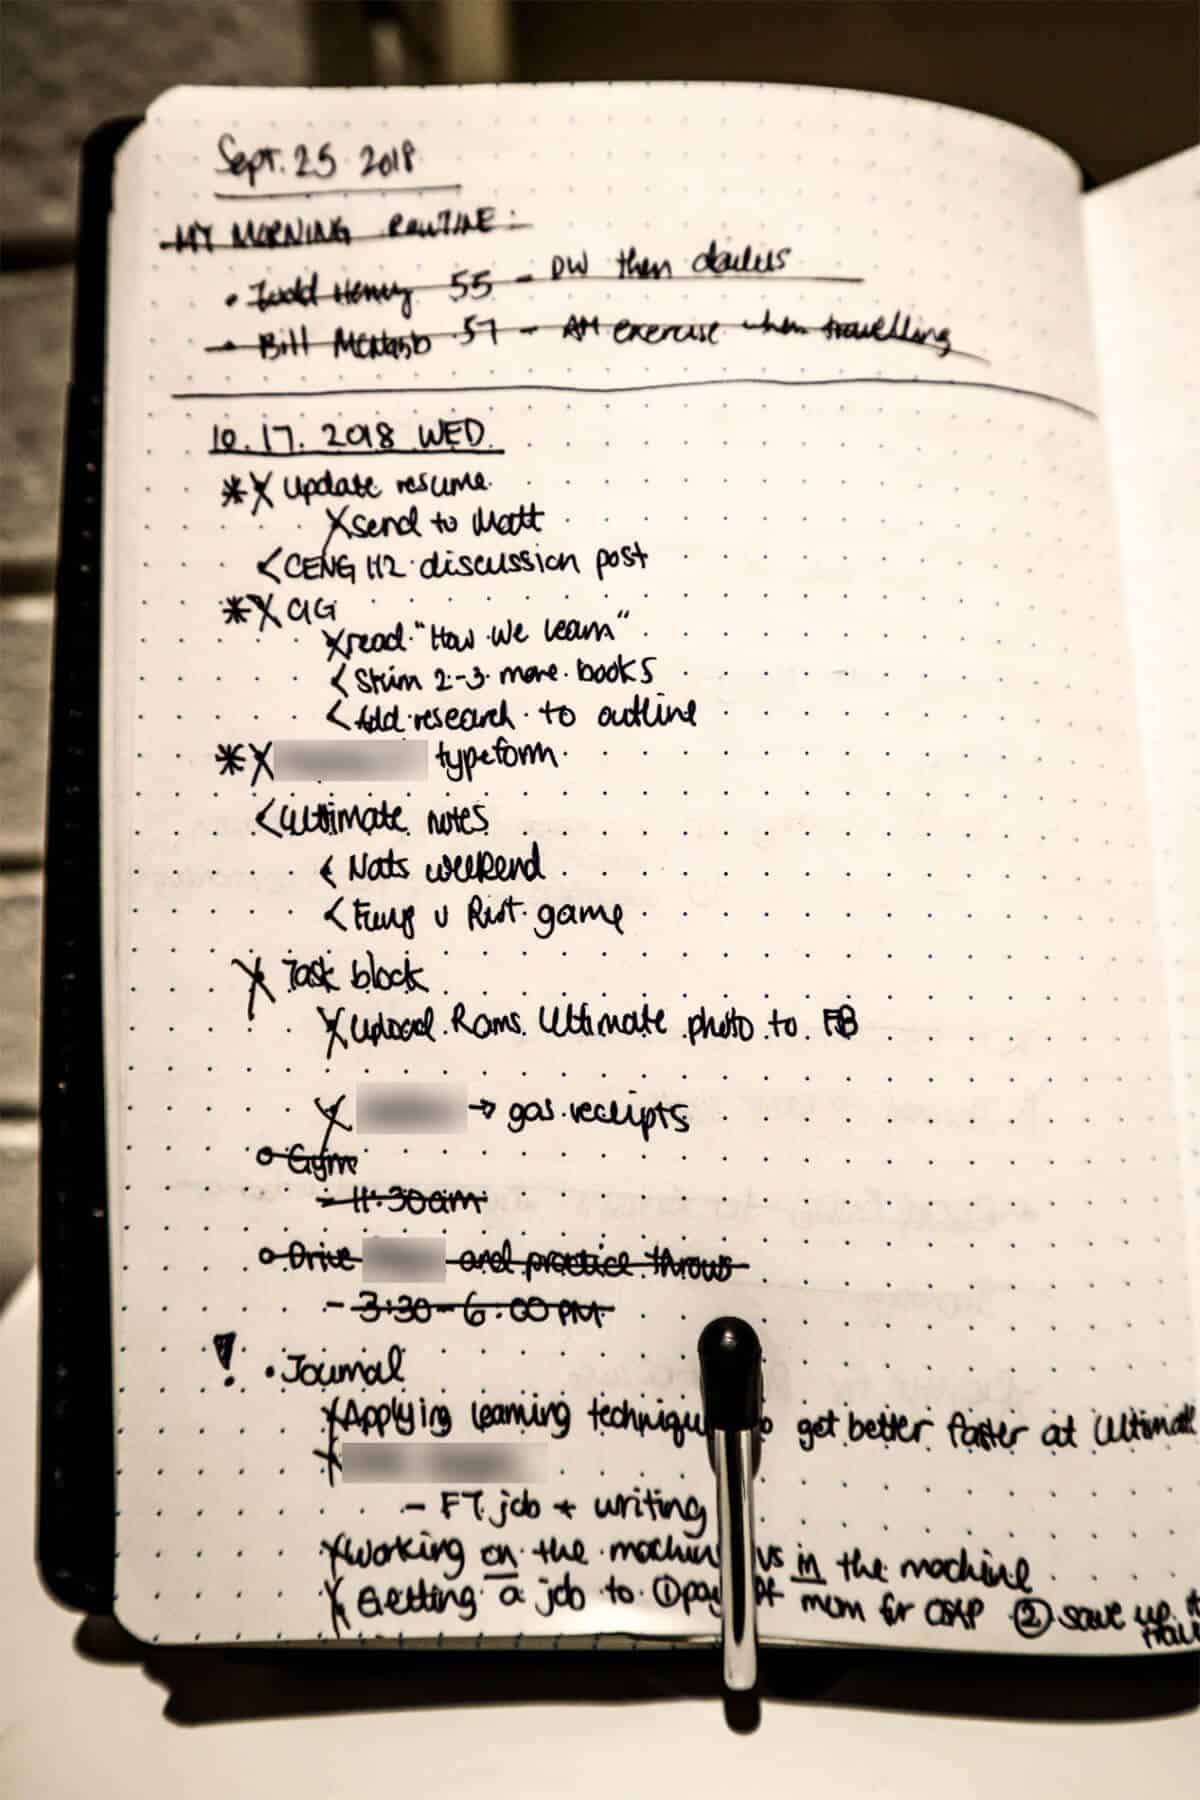 Sept. 25 2018
MY MORNING ROUTINE:
• Todd Henry 55 - DW then dailies
• Bill McNabb 57 - AM exercise when travelling
10.17.2018 WED.
*X Update resume
X send to Matt
< CENG 112 discussion post
*X CIG
X read "How We Learn"
< Skim 2-3 more books
< Add research to outline
*X typeform
< Ultimate notes
< Nats weekend
< Fury v Riot game
X Task block
X Upload Rams Ultimate photo to FB
X → gas receipts
o Gym
- 11:30am
o Drive and practice throws
- 3:30-6:00PM
! • Journal
X Applying learning get better faster at Ultimate
X
- FT job + writing
X Working on the vs in the machine
X Getting a job to ① mom for ② save up